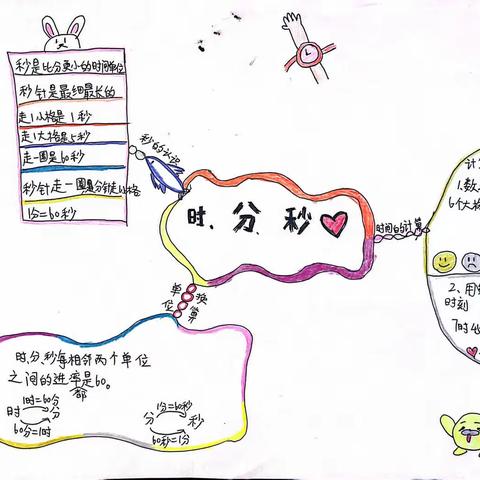 秒是比分更小的时间单位
秒针是最细最长的
走1小格是1秒
走1大格是5秒
走一圈是60秒
秒针走一圈是分针走1小格
1分=60秒
秒的认识
时、分、秒
时间的计算
单位换算
时、分、秒每相邻两个单位
之间的进率都是60。
1时=60分
时 分
60分=1时
1分=60秒
分 秒
60秒=1分
计
1、数
6个大格
2、用
时刻
7时